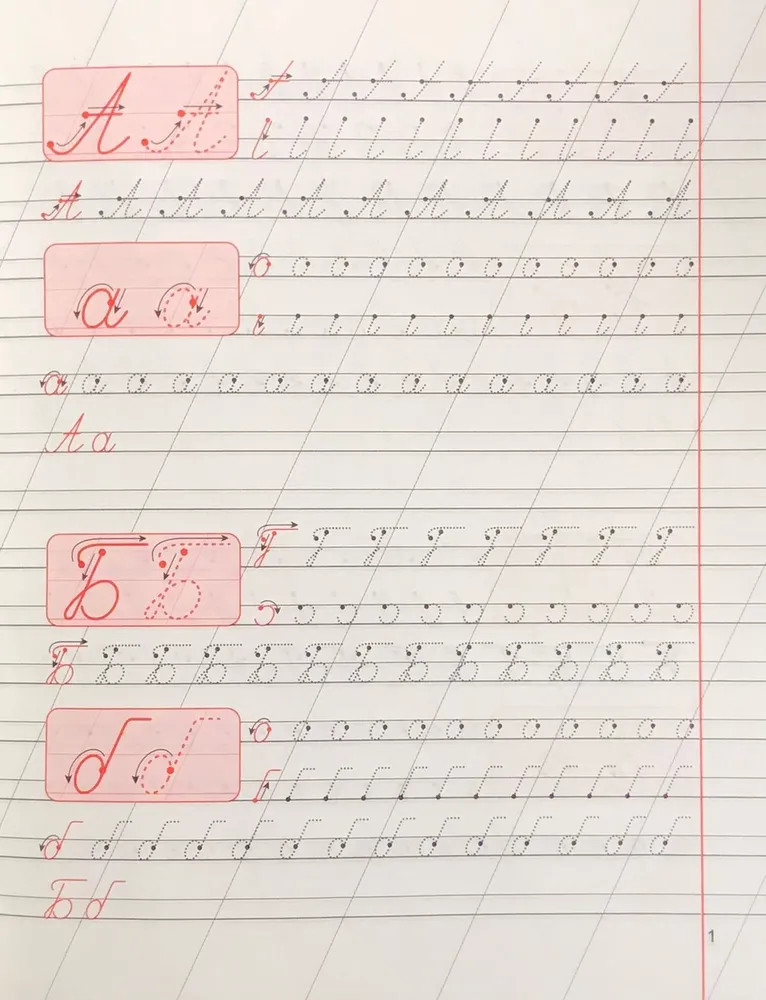 А А
А А А А А А А А А А А
а а
а а а а а а а а а а а а а а а
А а
Б Б
Б Б Б Б Б Б Б Б Б Б Б Б Б
б б
б б б б б б б б б б б б б б
Б б
1